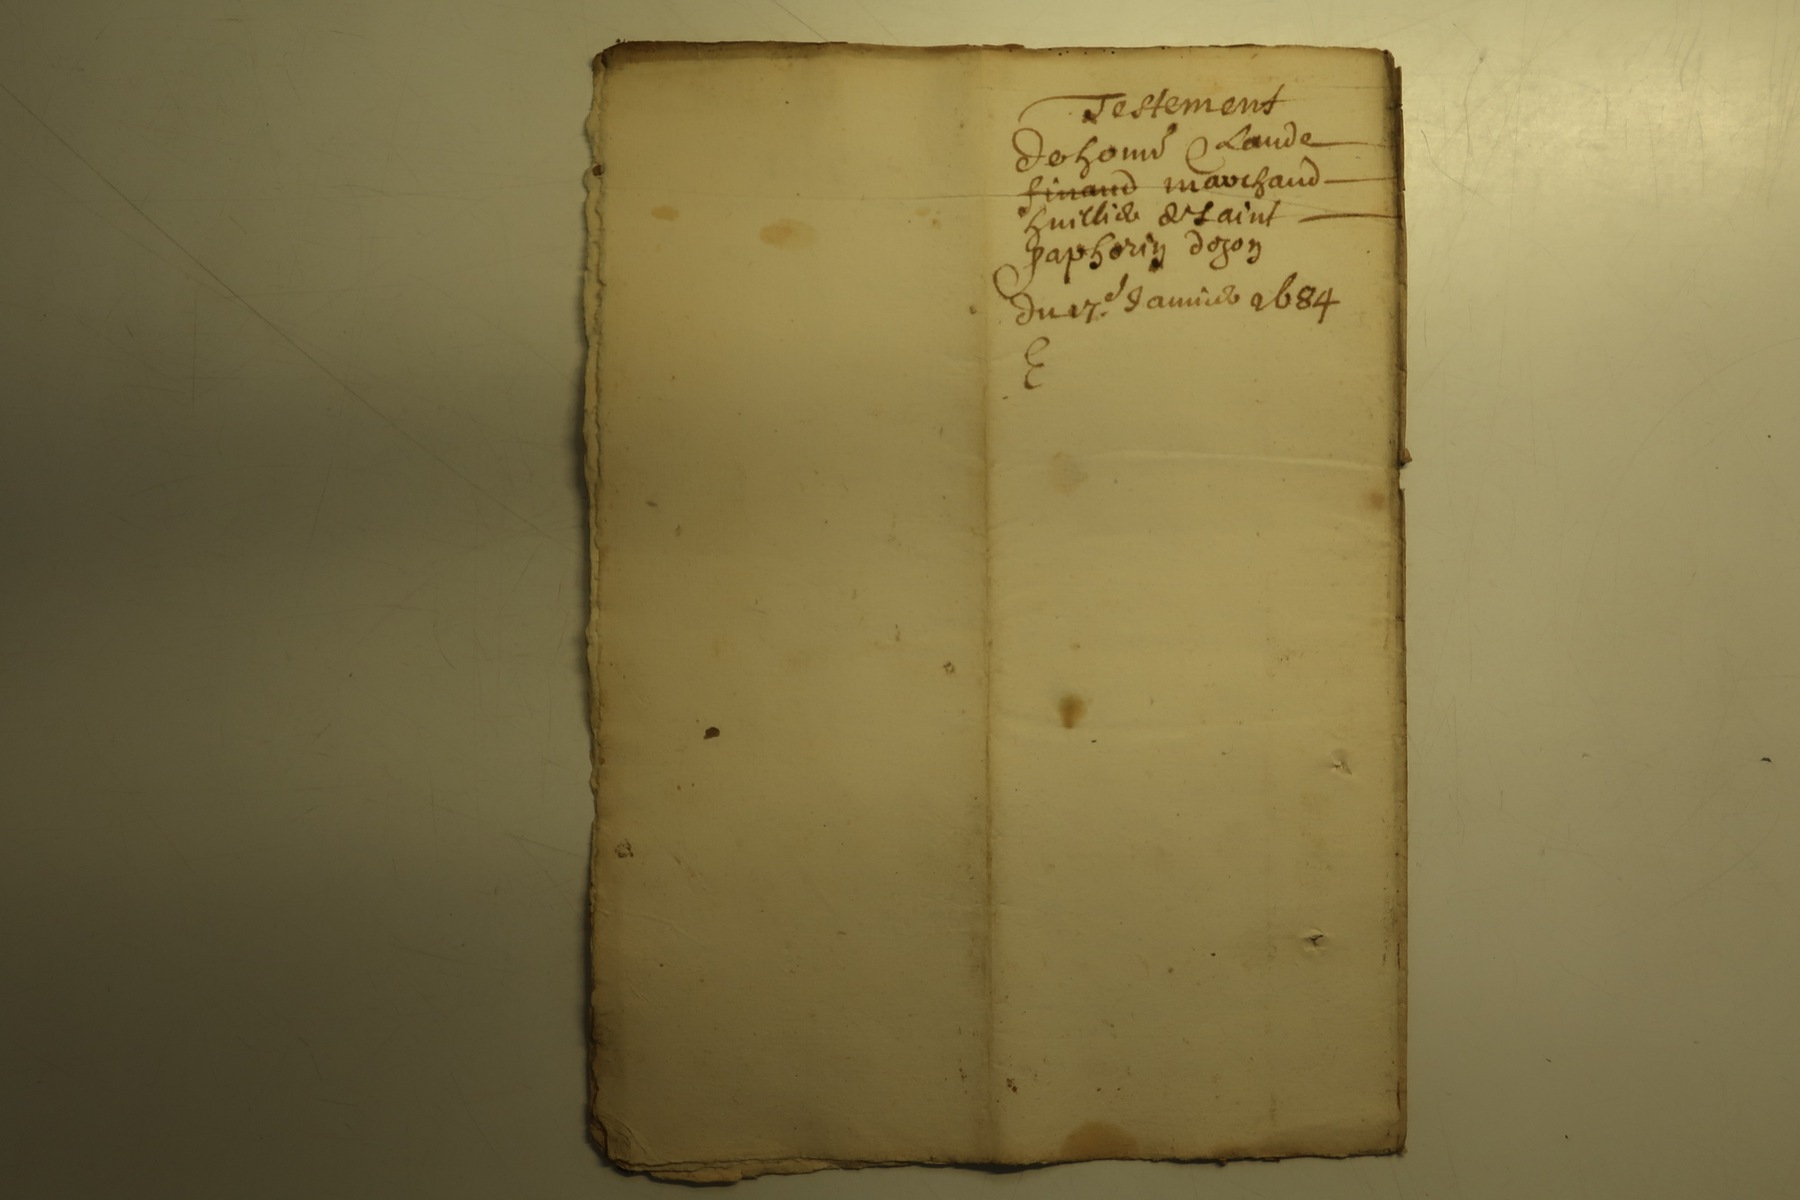 Testement
de hon.e Claude
finaud marchand
huillier de Saint
Saphorin dozon
du 17.e Januier 1684